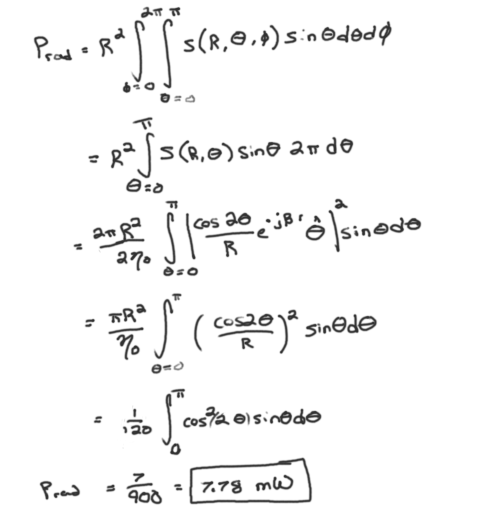 P_rad = R² ∫_{ϕ=0}^{2π} ∫_{θ=0}^{π} S(R,θ,ϕ) sinθ dθ dϕ
= R² ∫_{θ=0}^{π} S(R,θ) sinθ 2π dθ
= 2πR²/2η₀ ∫_{θ=0}^{π} |cos 2θ/R e^{-jβr} θ̂|² sinθ dθ
= πR²/η₀ ∫_{θ=0}^{π} (cos2θ/R)² sinθ dθ
= 1/120 ∫_0^π cos²(2θ) sinθ dθ
P_rad = 7/900 = 7.78 mW